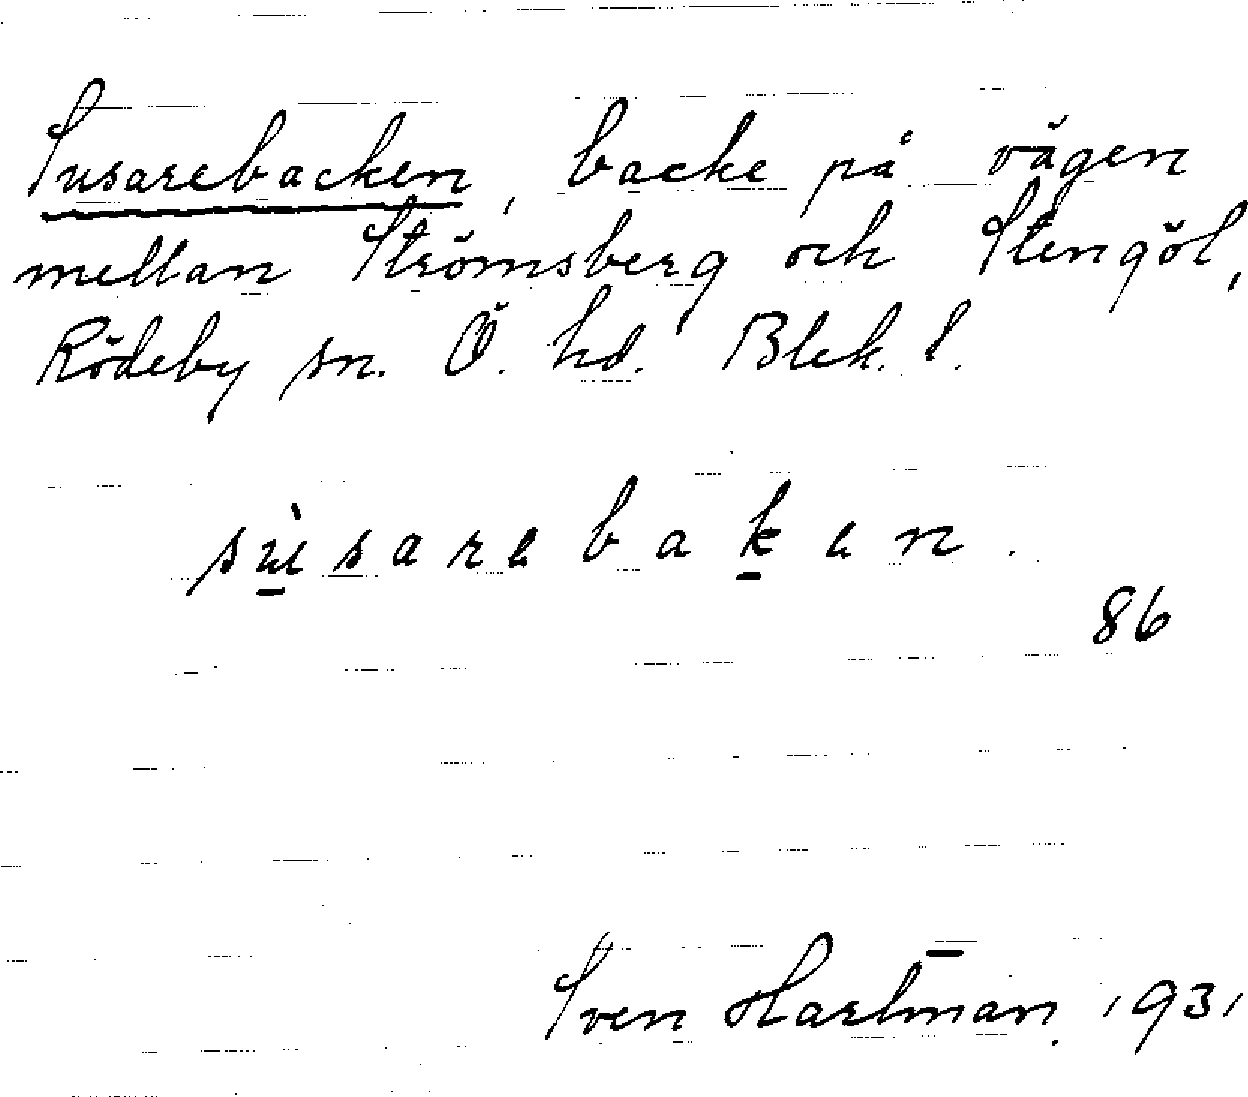 Susarebacken, backe på vägen
mellan Strömsberg och Stengöl,
Rödeby sn. Ö. hd. Blek. l.
sùsarebaken.
86
Sven Hartman. 1931